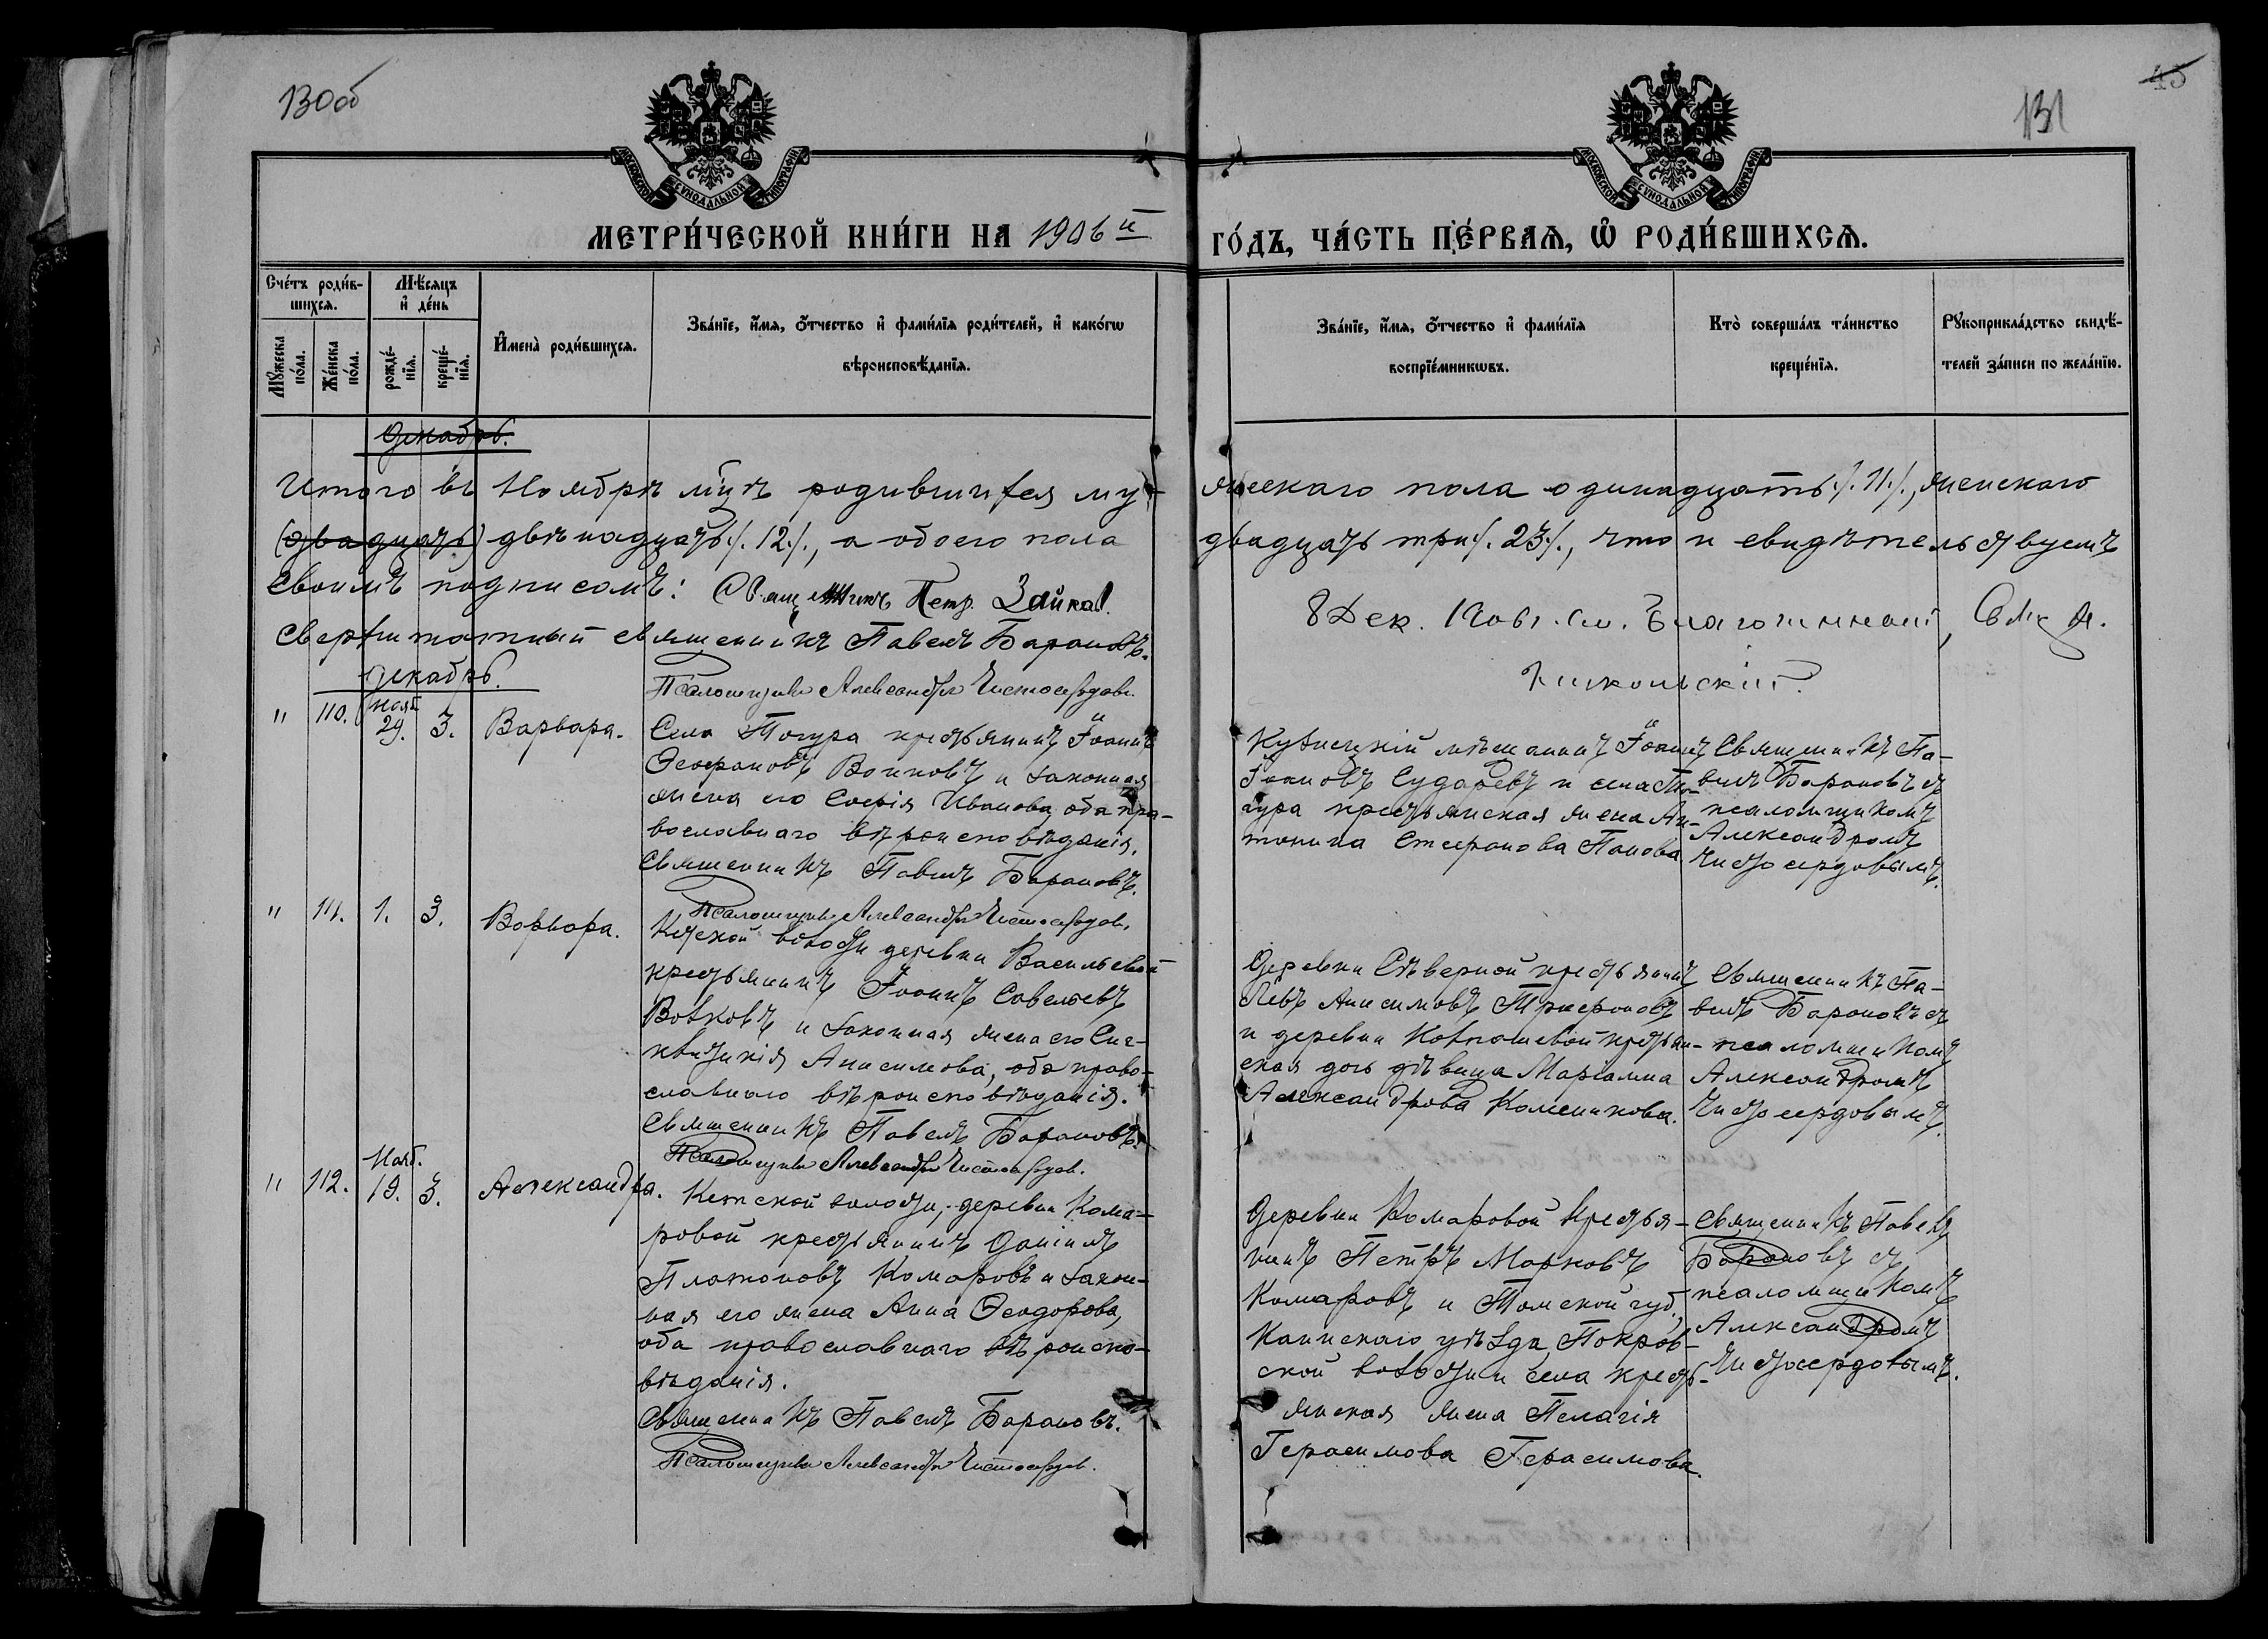 130 об
131
45
МОСКОВСКОЙ СѴНОДАЛЬНОЙ ТИПОГРАФІИ
МОСКОВСКОЙ СѴНОДАЛЬНОЙ ТИПОГРАФІИ
МЕТРИ́ЧЕСКОЙ КНИ́ГИ НА 1906 й
ГО́ДЪ, ЧА́СТЬ ПЕ́РВАѦ, Ѡ РОДИ́ВШИХСѦ.
Сче́тъ роди́в-
шихсѧ.
Мѣ́сяцъ
и҆ де́нь
Мꙋ́жеска
по́ла.
Же́нска
по́ла.
рожде́-
нїѧ.
креще́-
нїѧ.
И҆мена̀ роди́вшихсѧ.
Зва́нїе, и҆́мѧ, ѻ҆́тчество и҆ фами́лїѧ роди́телей, и҆ како́гѡ
вѣроисповѣ́данїѧ.
Зва́нїе, и҆́мѧ, ѻ҆́тчество и҆ фами́лїѧ
воспрїе́мникѡвъ.
Кто̀ соверша́лъ та́инство
креще́нїѧ.
Рꙋкоприкла́дство свидѣ́-
телей за́писи по жела́нїю.
Декабрь.
Итого въ Ноябрѣ м-цѣ родившихся му-
жескаго пола одинадцать ./.11./., женскаго
(двадцать) двѣнадцать ./.12./., а обоего пола
двадцать три ./.23./., что и свидѣтельствуемъ
своимъ подписомъ: Священникъ Петр. Зайков.
8 Дек. 1906 г. Благочинный, Свящ. А.
Сверхштатный священникъ Павелъ Барановъ.
Никольскій.
Декабрь.
Псаломщикъ Александръ Чистосердовъ.
" 110. Нояб. 29. 3. Варвара.
Села Тогура крестьянинъ Іоаннъ
Ѳеофановъ Волковъ и законная
жена его Софія Иванова, оба пра-
вославнаго вѣроисповѣданія.
Священникъ Павелъ Барановъ.
Псаломщикъ Александръ Чистосердов.
Кузнецкій мѣщанинъ Іоаннъ
Іоановъ Сударевъ и села То-
гура крестьянская жена Ан-
тонина Стефанова Панова.
Священникъ Па-
велъ Барановъ съ
псаломщикомъ
Александромъ
Чистосердовымъ.
" 111. 1. 3. Варвара.
Кетской волости деревни Васильевой
крестьянинъ Іоаннъ Савельевъ
Волковъ и законная жена его Сиг-
клитикія Анисимова, оба право-
славнаго вѣроисповѣданія.
Священникъ Павелъ Барановъ.
Псаломщикъ Александръ Чистосердов.
Деревни Сѣверной крестьянинъ
Левъ Анисимовъ Трифоновъ
и деревни Колпашевой крестьян-
ская дочь дѣвица Маріамна
Александрова Колесникова.
Священникъ Па-
велъ Барановъ съ
псаломщикомъ
Александромъ
Чистосердовымъ.
" 112. Нояб. 19. 3. Александра.
Кетской волости, деревни Кома-
ровой крестьянинъ Даніилъ
Платоновъ Комаровъ и закон-
ная его жена Анна Ѳеодорова,
оба православнаго вѣроиспо-
вѣданія.
Священникъ Павелъ Барановъ.
Псаломщикъ Александръ Чистосердов.
Деревни Комаровой крестья-
нинъ Петръ Марковъ
Комаровъ и Томской губ.
Каинскаго уѣзда, Покров-
ской волости и села кресть-
янская жена Пелагія
Герасимова Герасимова.
Священникъ Павелъ
Барановъ съ
псаломщикомъ
Александромъ
Чистосердовымъ.